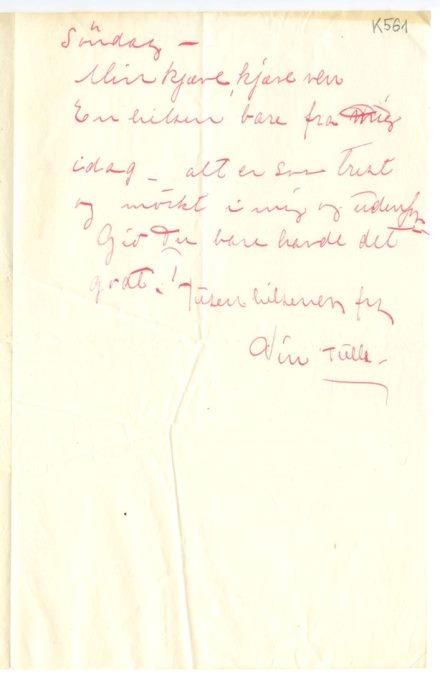 K561
Söndag –
Min kjære, kjære ven
En hilsen bare fra mig
idag – alt er saa trist
og mörkt i mig og udenfor
Gid Du bare havde det
godt.!
Tusen hilsener fra
Din Tulla –